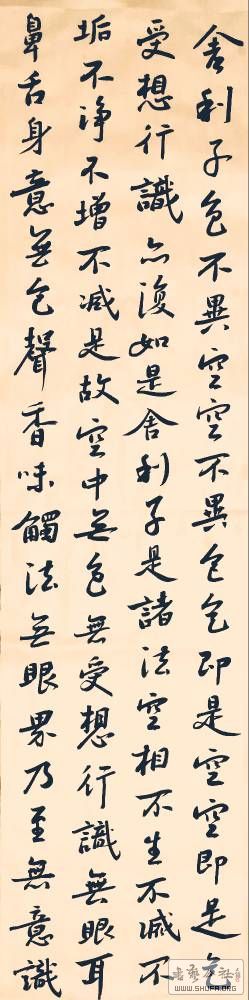 舍利子色不異空空不異色色即是空空即是色
受想行識亦復如是舍利子是諸法空相不生不滅不
垢不淨不增不减是故空中无色無受想行識無眼耳
鼻舌身意無色聲香味觸法無眼界乃至無意識
WWW.SHUFA.ORG